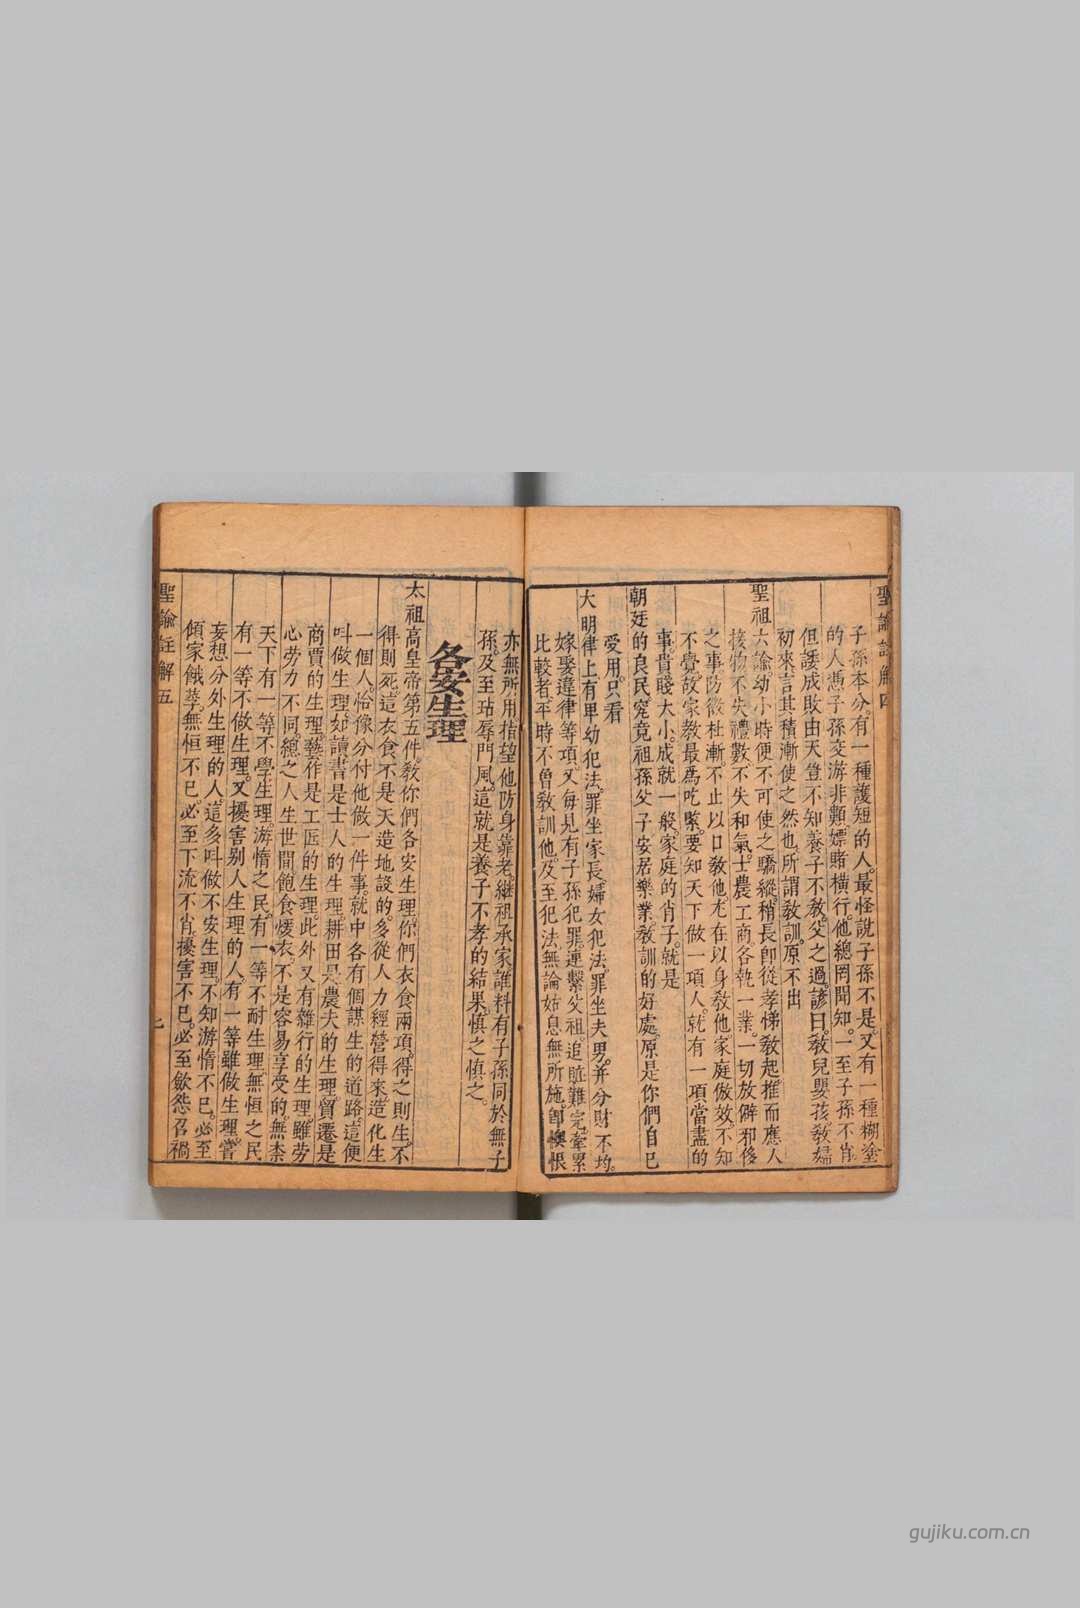 聖諭註解四
子孫本分。有一種護短的人。最怪說子孫不是。又有一種糊塗
的人。憑子孫交游非類。嫖賭橫行。他總罔聞知。一至子孫不肖。
但諉成敗由天。豈不知養子不教。父之過。諺曰。教兒嬰孩。教婦
初來。言其積漸使之然也。所謂教訓。原不出
聖祖六諭。幼小時便不可使之驕縱。稍長即從孝悌教起。推而應人
接物。不失禮數。不失和氣。士農工商。各執一業。一切放僻邪侈
之事。防微杜漸。不止以口教他。尤在以身教他。家庭倣效。不知
不覺。故家教最爲吃緊。要知天下做一項人。就有一項當盡的
事。貴賤大小。成就一般。家庭的肖子。就是
朝廷的良民。究竟祖孫父子。安居樂業。教訓的好處。原是你們自己
受用。只看
大明律上有卑幼犯法。罪坐家長。婦女犯法。罪坐夫男。并分財不均。
嫁娶違律等項。又每見有子孫犯罪。連繫父祖。追贓難完。牽累
比較者。平時不曾教訓他。及至犯法。無論姑息無所施。卽懊悵
亦無所用。指望他防身靠老。繼祖承家。誰料有子孫。同於無子
孫。及至玷辱門風。這就是養子不孝的結果。慎之慎之。
各安生理
太祖高皇帝第五件。教你們各安生理。你們衣食兩項。得之則生。不
得則死。這衣食不是天造地設的。多從人力經營得來。造化生
一個人。恰像分付他做一件事。就中各有個謀生的道路。這便
叫做生理。如讀書是士人的生理。耕田是農夫的生理。貿遷是
商賈的生理。藝作是工匠的生理。此外又有雜行的生理。雖勞
心勞力不同。總之人生世間。飽食煖衣。不是容易享受的。無柰
天下有一等不學生理。游惰之民。有一等不耐生理。無恒之民
有一等不做生理。又擾害别人生理的人。有一等雖做生理。嘗
妄想分外生理的人。這多叫做不安生理。不知游惰不已。必至
傾家餓莩。無恒不已。必至下流不肖。擾害不已。必至斂怨召禍
聖諭註解五
七
gujiku.com.cn